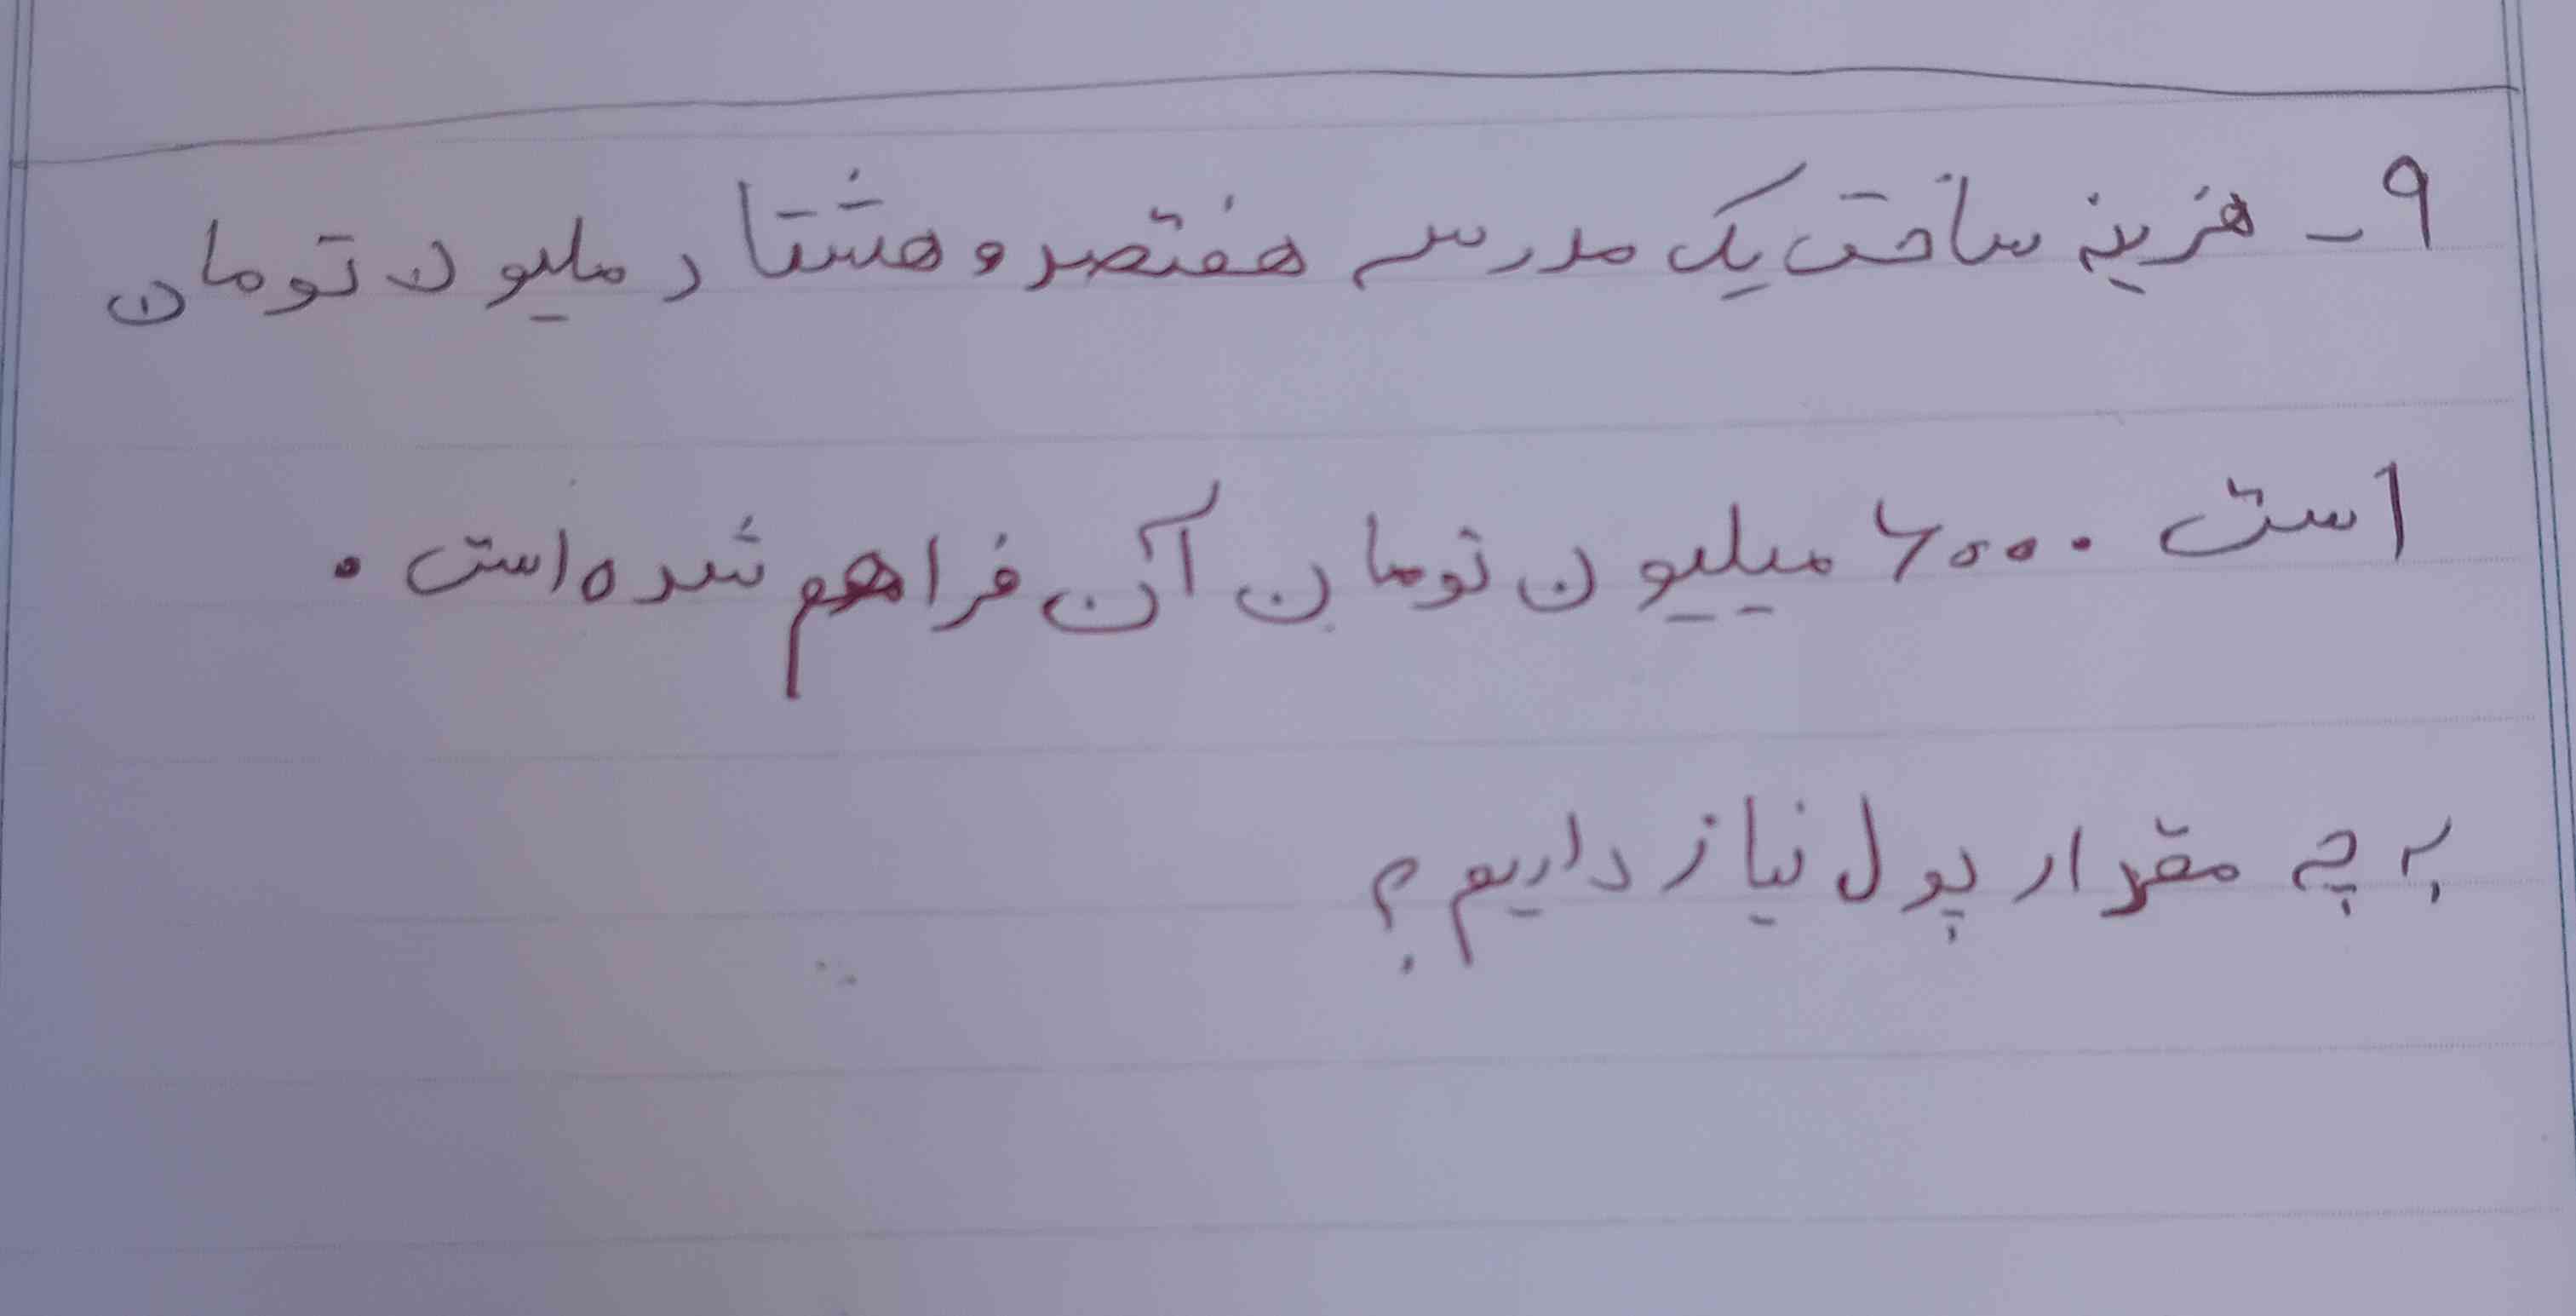 ۹- هزینه ساخت یک مدرسه هفتصد و هشتاد ملیون تومان
است ۶۰۰۰۰ میلیون تومان آن فراهم شده است.
به چه مقدار پول نیاز داریم؟